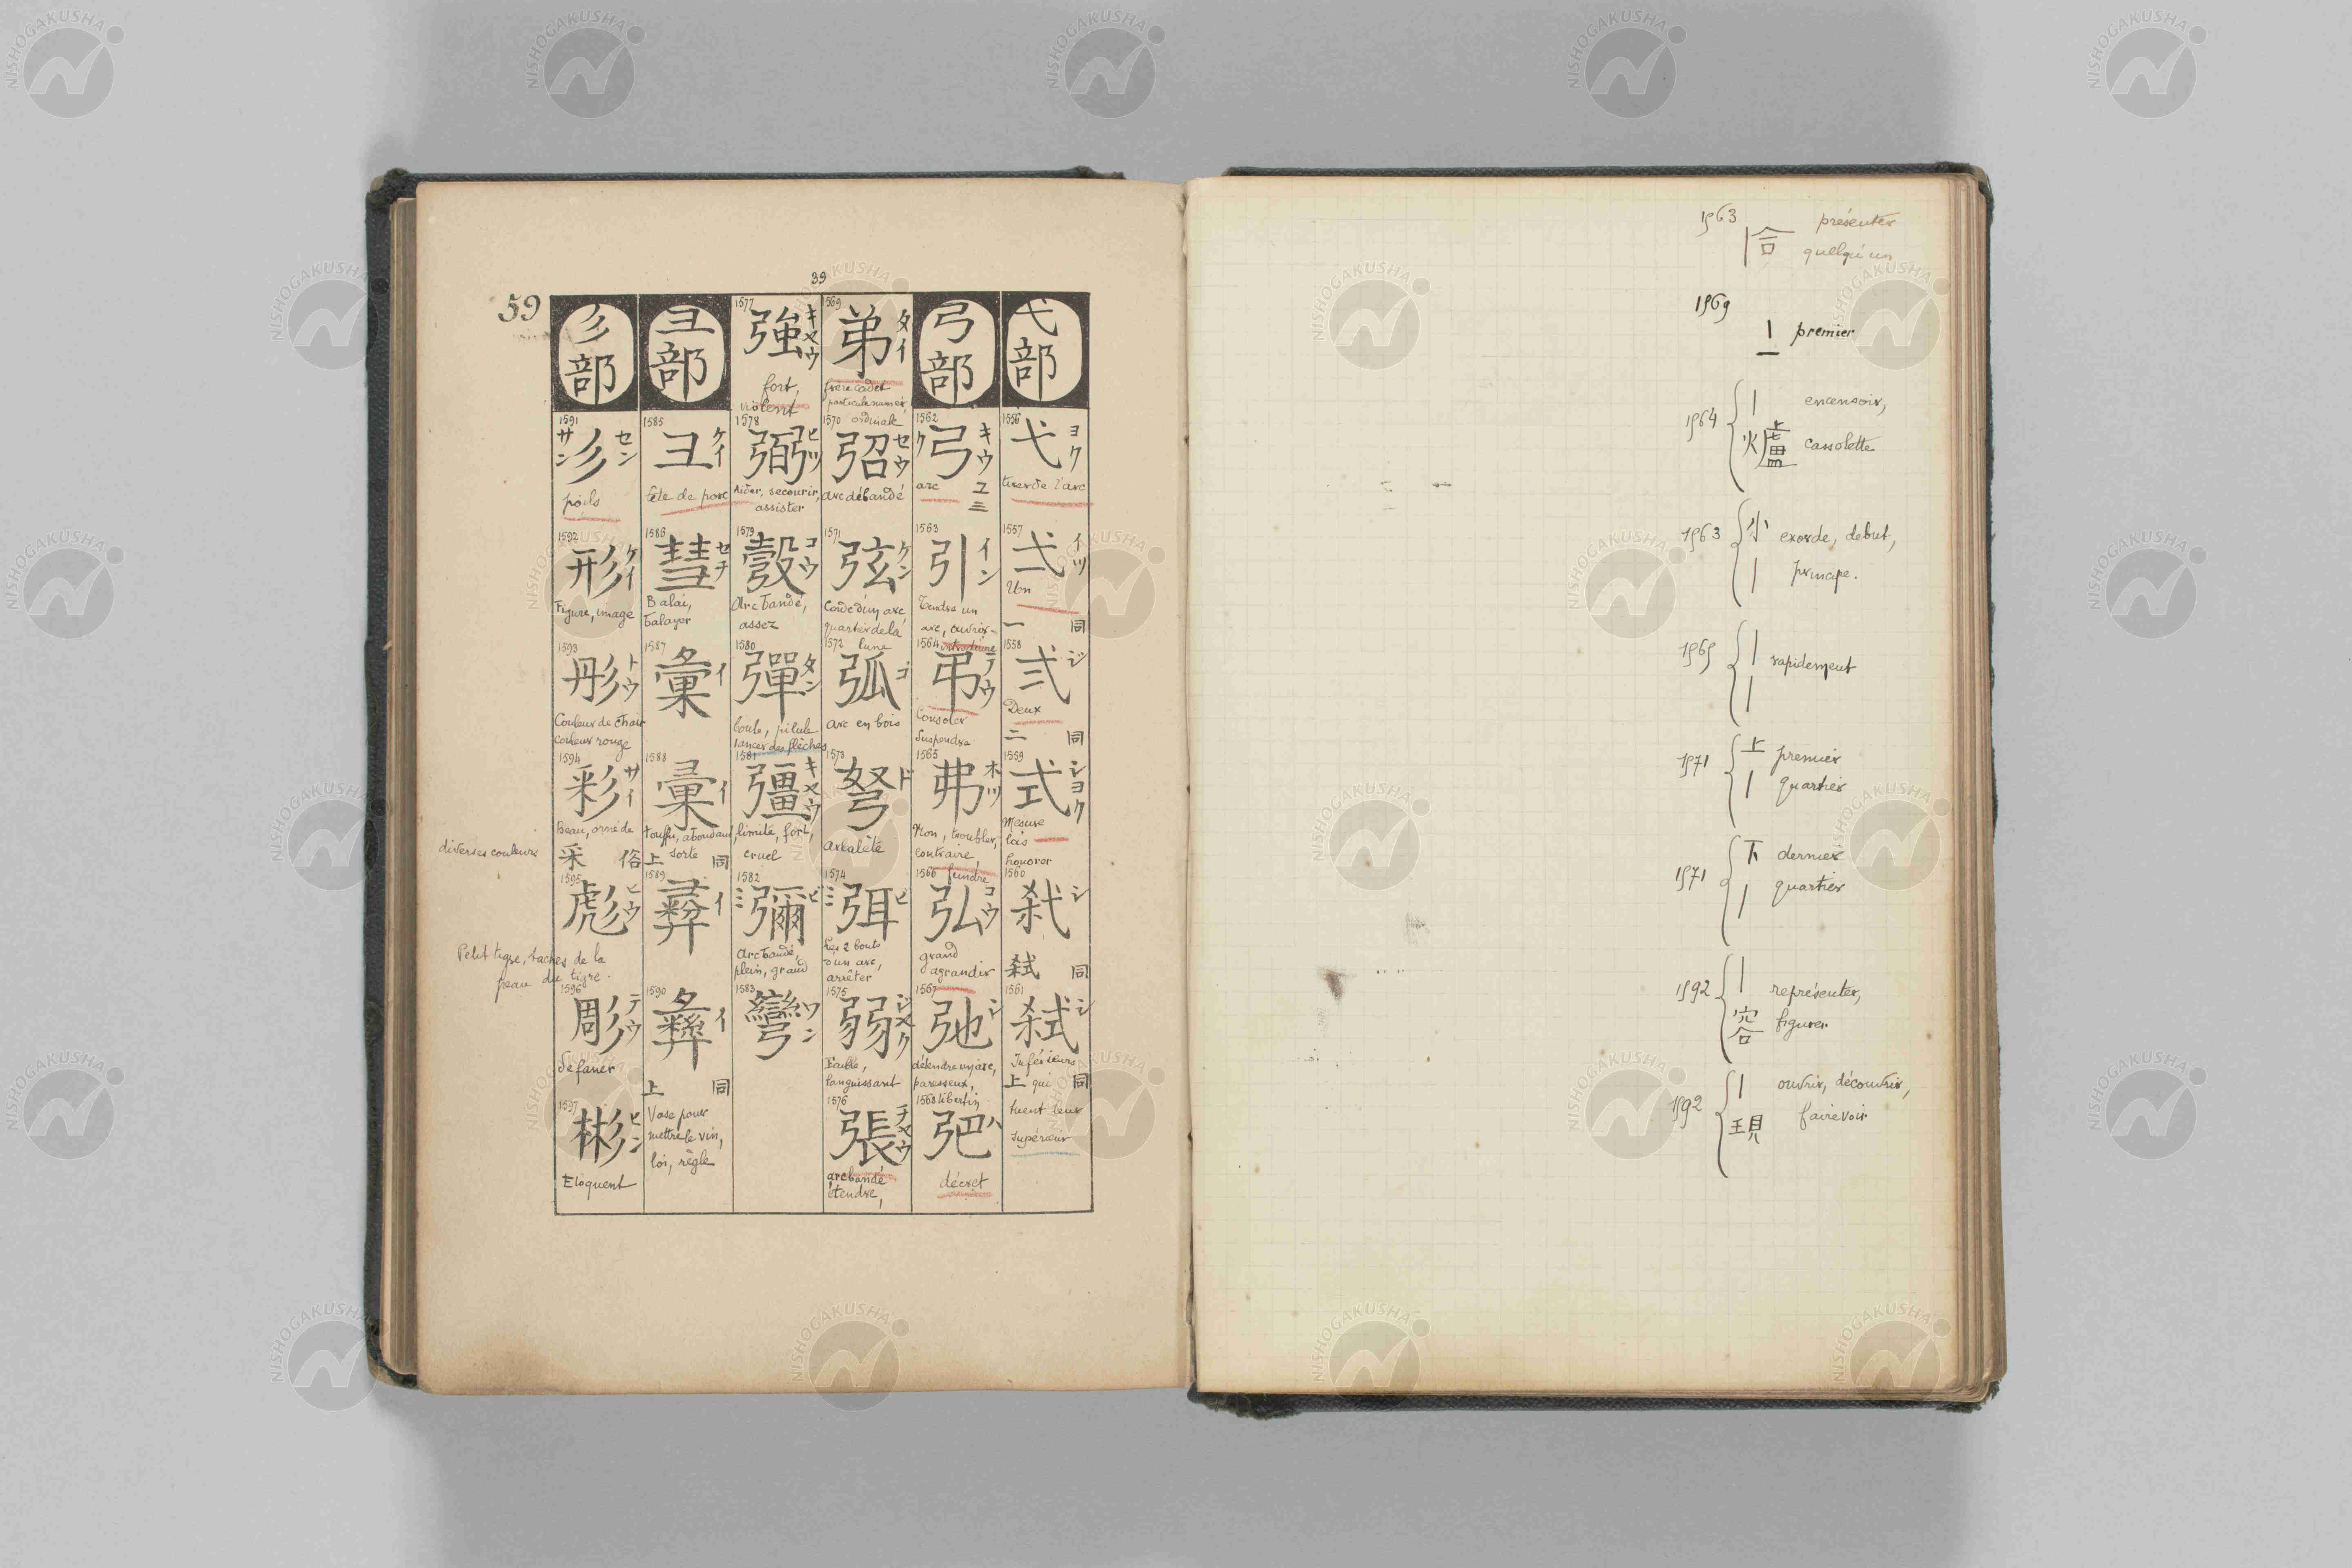 39
59
弋部
1556
弋
ヨク
tirer de l'arc
1557
弌
イツ
Un
一 同
1558
弍
ジ
Deux
二 同
1559
式
シヨク
Mesure
lois
honorer
1560
弑
シ
弑 同
1561
弑
シ
Inférieurs
上 qui 同
tuent leur
supérieur
弓部
1562
弓
キウ
ク
arc
ユミ
1563
引
イン
Tendre un
arc, ouvrir
1564
弔
テウ
Consoler
Suspendre
1565
弗
ホツ
Non, troubler,
contraire,
feindre
1566
弘
コウ
grand
agrandir
1567
弛
シ
détendre un arc,
paresseux,
libertin
1568
弝
ハ
décret
1569
弟
タイ
frère cadet
particule numér.
ordinale
1570
弨
セウ
arc débandé
1571
弦
ケン
Corde d'un arc
quartier de la
lune
1572
弧
ゴ
arc en bois
1573
弩
ド
arbalète
1574
弭
ビ
ミ
Les 2 bouts
d'un arc,
arrêter
1575
弱
ジヤク
Faible,
languissant
1576
張
チヤウ
arc bandé
étendre,
1577
強
キヤウ
fort,
violent
1578
弼
ヒツ
Aider, secourir,
assister
1579
彀
コウ
Arc bandé,
assez
1580
彈
タン
boule, pilule
lancer des flèches
1581
彊
キヤウ
limite, fort,
cruel
1582
彌
ビ
ミ
Arc bandé,
plein, grand
1583
彎
ワン
彐部
1585
彐
ケイ
tête de porc
1586
彗
セチ
Balai,
balayer
1587
彙
イ
1588
彙
イ
touffu, abondant,
上 sorte 同
1589
彛
イ
1590
彝
イ
上 同
Vase pour
mettre le vin,
loi, règle
彡部
1591
彡
セン
サン
poils
1592
形
ケイ
Figure, image
1593
彤
トウ
Couleur de chair
couleur rouge
1594
彩
サイ
Beau, orné de
diverses couleurs
采 俗
1595
彪
ヒウ
Petit tigre, taches de la
peau du tigre.
1596
彫
テウ
Se faner
1597
彬
ヒン
Eloquent
1563
présenter
quelqu'un
1569
丨 premier
一
1564
丨 encensoir,
爐 cassolette
1563
小 exorde, debut,
丨 principe.
1565
丨 rapidement
丨
1571
上 premier
丨 quartier
1571
下 dernier
丨 quartier
1592
丨 représenter,
容 figurer
1592
丨 ouvrir, découvrir,
現 faire voir